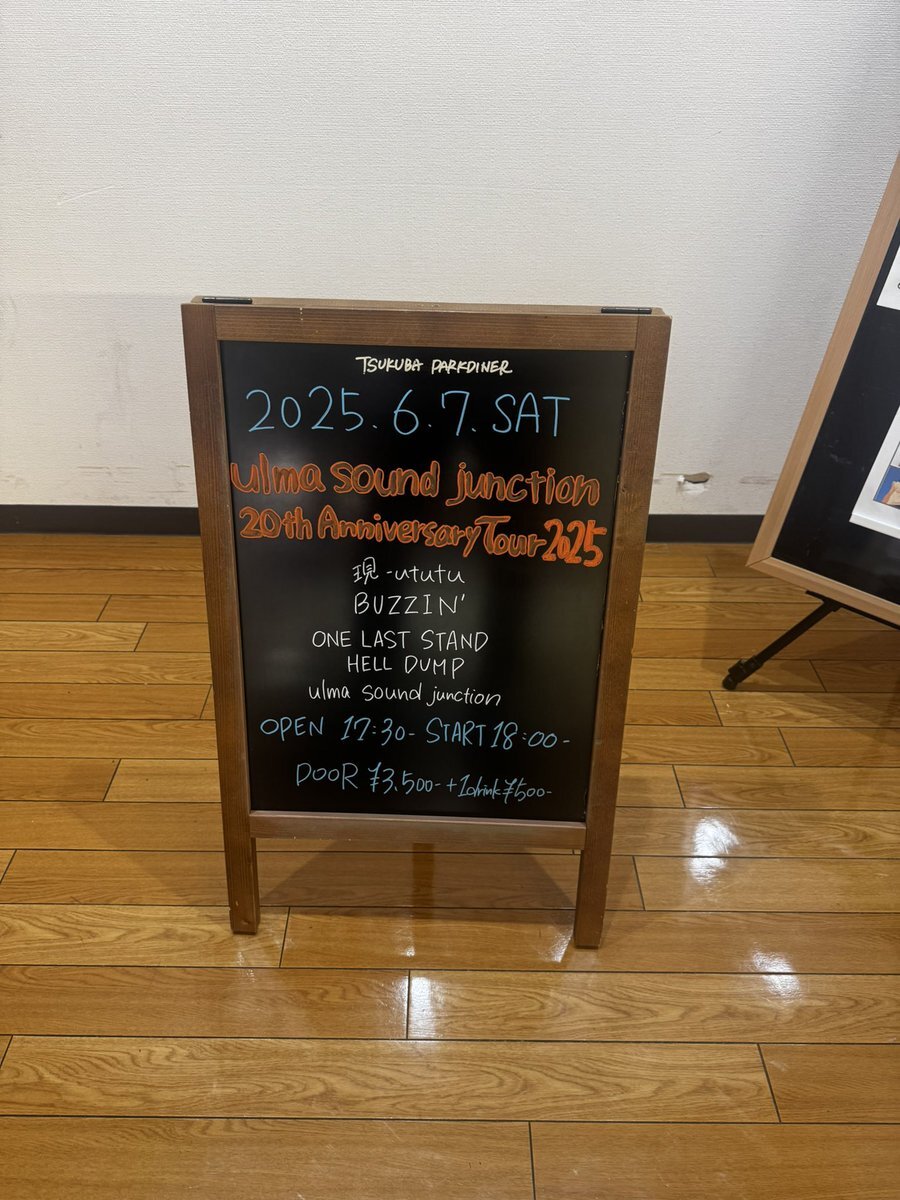 TSUKUBA PARKDINER
2025.6.7.SAT
ulma sound junction
20th Anniversary Tour 2025
現-ututu
BUZZIN'
ONE LAST STAND
HELL DUMP
ulma sound junction
OPEN 17:30- START 18:00-
DOOR ¥3,500- +1drink ¥500-